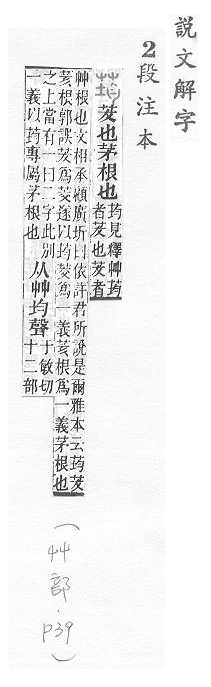 說文解字
2段注本
荺 茇也茅根也
荺見釋艸荺
者茇也茇者
艸根也文相承顧廣圻曰依許君所說是爾雅本云荺茇
荄根郭誤茇爲荄遂以荺荄爲一義荄根爲一義茅根也
之上當有一曰二字此別
一義以荺專屬茅根也
从艸均聲
于敏切
十二部
(艸部.P39)